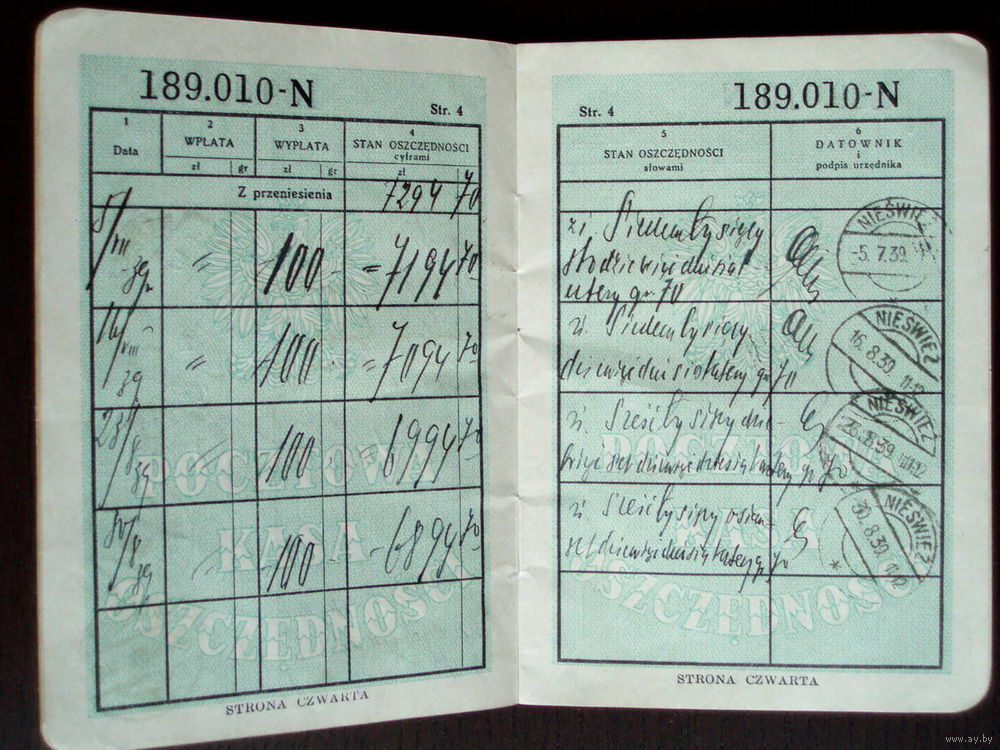 189.010-N
Str. 4
1
Data
2
WPŁATA
zł gr
3
WYPŁATA
zł gr
4
STAN OSZCZĘDNOŚCI
cyframi
zł
Z przeniesienia 7294 70
5/VII 39 " 100 - = 7194 70
16/VIII 39 " 100 - = 7094 70
23/8 39 " 100 - 6994 70
30/8 39 " 100 - 6894 70
POCZTOWA
KASA
OSZCZĘDNOŚCI
STRONA CZWARTA
Str. 4
189.010-N
5
STAN OSZCZĘDNOŚCI
słowami
6
DATOWNIK
i
podpis urzędnika
zł. Siedem tysięcy
sto dziewięćdziesiąt
cztery gr 70
NIEŚWIEŻ
-5. 7.39
zł. Siedem tysięcy
dziewięćdziesiąt cztery gr 70
NIEŚWIEŻ
16. 8.39 11-12
zł. Sześć tysięcy dzie-
więćset dziewięćdziesiąt cztery gr 70
NIEŚWIEŻ
23. 8.39 11-12
zł. Sześć tysięcy osiem-
set dziewięćdziesiąt cztery gr 70
NIEŚWIEŻ
30. 8.39 11-12
POCZTOWA
KASA
OSZCZĘDNOŚCI
STRONA CZWARTA
www.ay.by